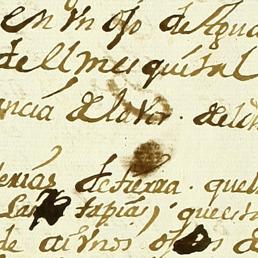 en Vn ojo de Agua
del mesquital
ancia de la Vor. del
erias de tierra. que
Las tapias, que esta
de almos ojos de